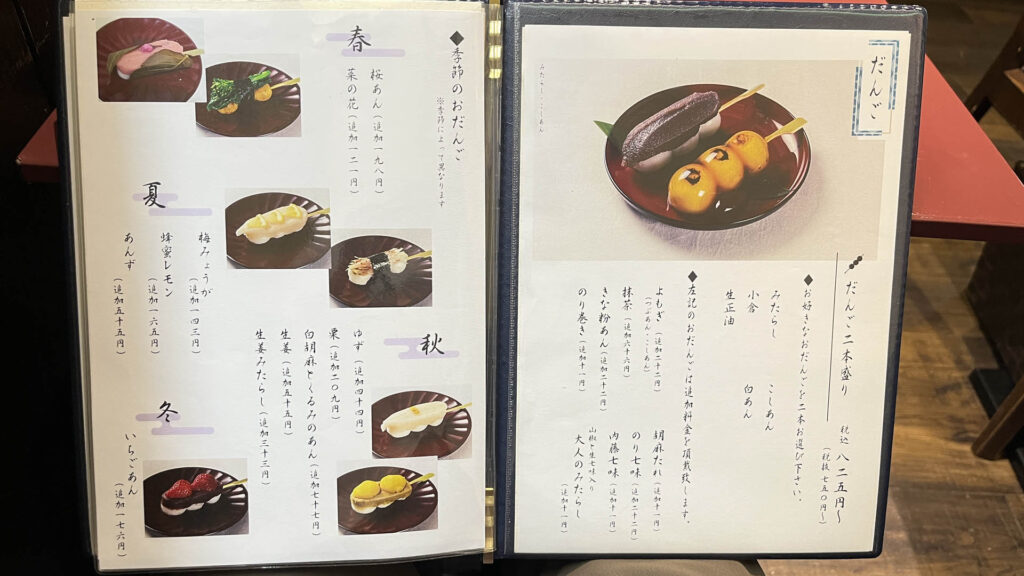 だんご
みたらし・こしあん
だんご二本盛り 税込 八二五円～
（税抜 七五〇円～）
◆お好きなおだんごを二本お選び下さい。
みたらし こしあん
小倉 白あん
生正油
◆左記のおだんごは追加料金を頂戴致します。
よもぎ（追加二十二円）
（つぶあん・こしあん）
抹茶（追加六十六円）
きな粉あん（追加二十二円）
のり巻き（追加十一円）
胡麻だれ（追加十一円）
のり七味（追加二十二円）
内藤七味（追加十一円）
山椒と生七味入り
大人のみたらし
（追加十一円）
◆季節のおだんご
※季節によって異なります
春
桜あん（追加一九八円）
菜の花（追加一二一円）
夏
梅みょうが
（追加一四三円）
蜂蜜レモン
（追加一六五円）
あんず
（追加五十五円）
秋
ゆず（追加四十四円）
栗（追加二〇九円）
白胡麻とくるみのあん（追加七十七円）
生姜（追加五十五円）
生姜みたらし（追加三十三円）
冬
いちごあん
（追加一七六円）